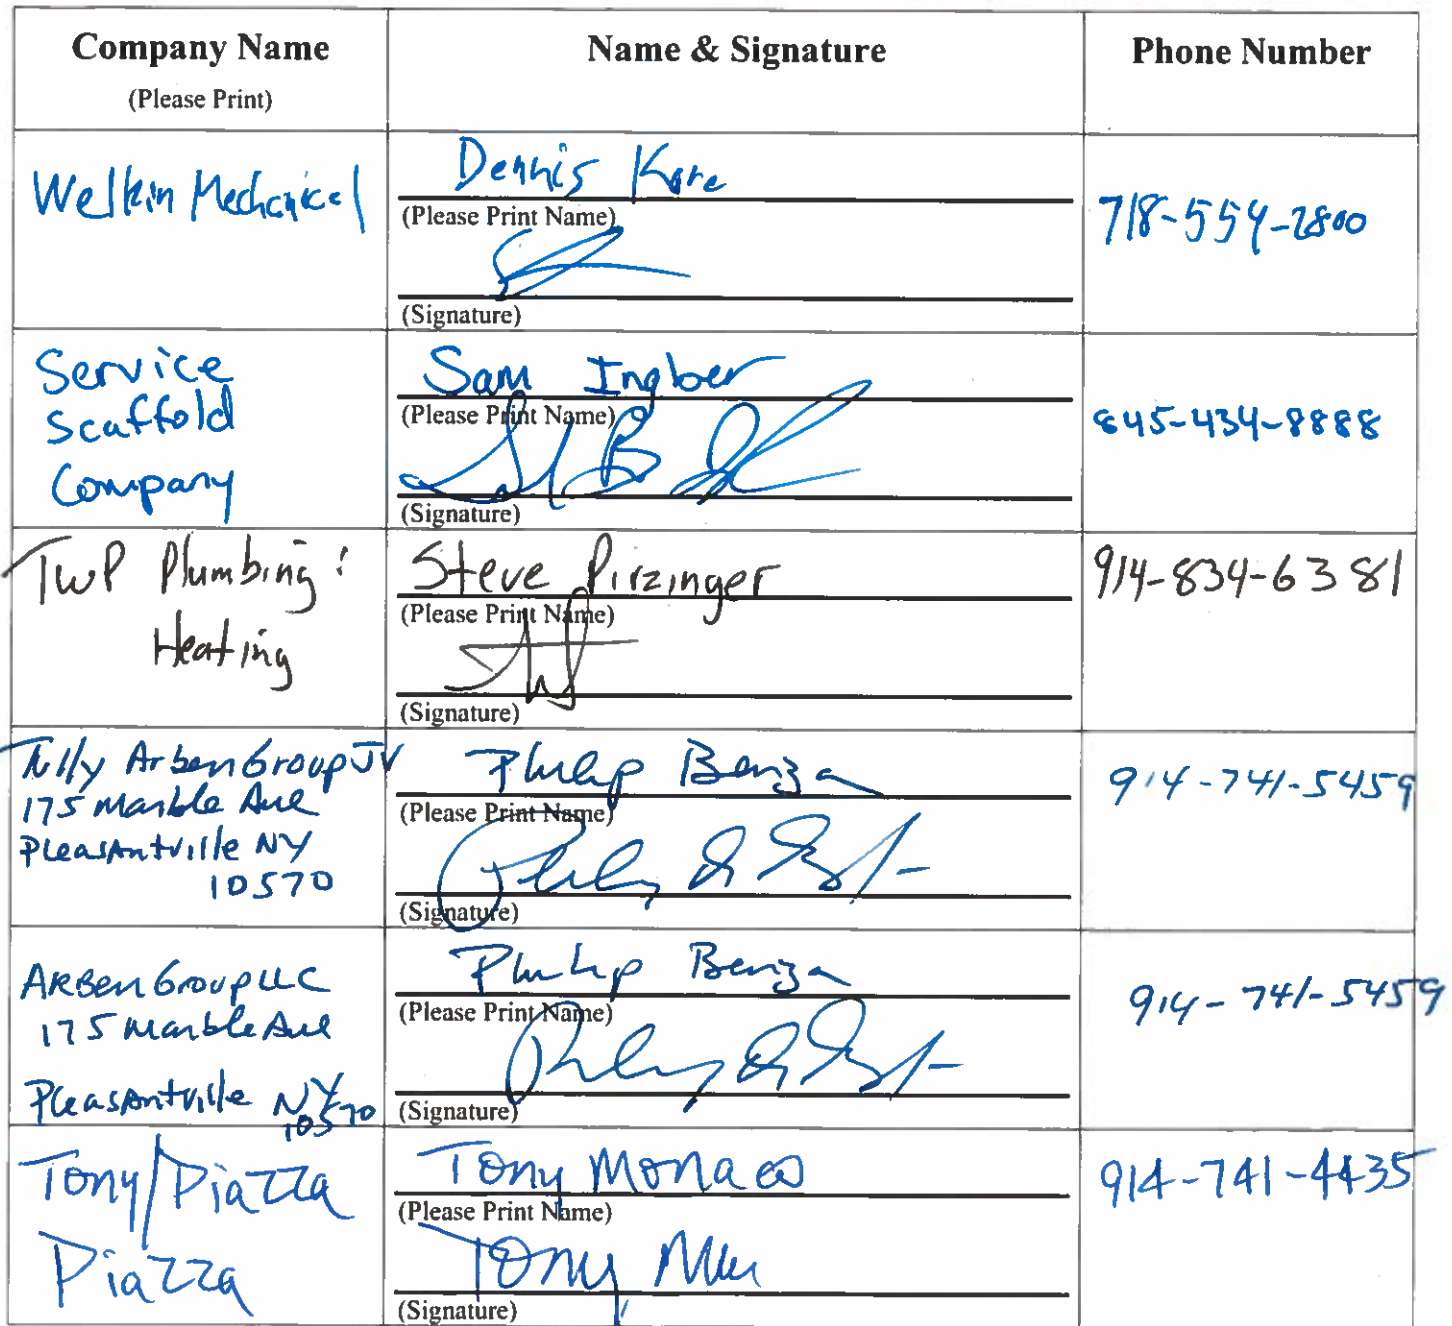 Company Name
(Please Print)
Name & Signature
Phone Number
Welkin Mechanical
Dennis Kore
(Please Print Name)
(Signature)
718-554-2800
Service
Scaffold
Company
Sam Ingber
(Please Print Name)
(Signature)
845-434-8888
TWP Plumbing &
Heating
Steve Pirzinger
(Please Print Name)
(Signature)
914-834-6381
Tully Arben Group JV
175 Marble Ave
Pleasantville NY
10570
Philip Benza
(Please Print Name)
(Signature)
914-741-5459
ARBen Group LLC
175 Marble Ave
Pleasantville NY
10570
Philip Benza
(Please Print Name)
(Signature)
914-741-5459
Tony/Piazza
Piazza
Tony Monaco
(Please Print Name)
Tony
(Signature)
914-741-4435